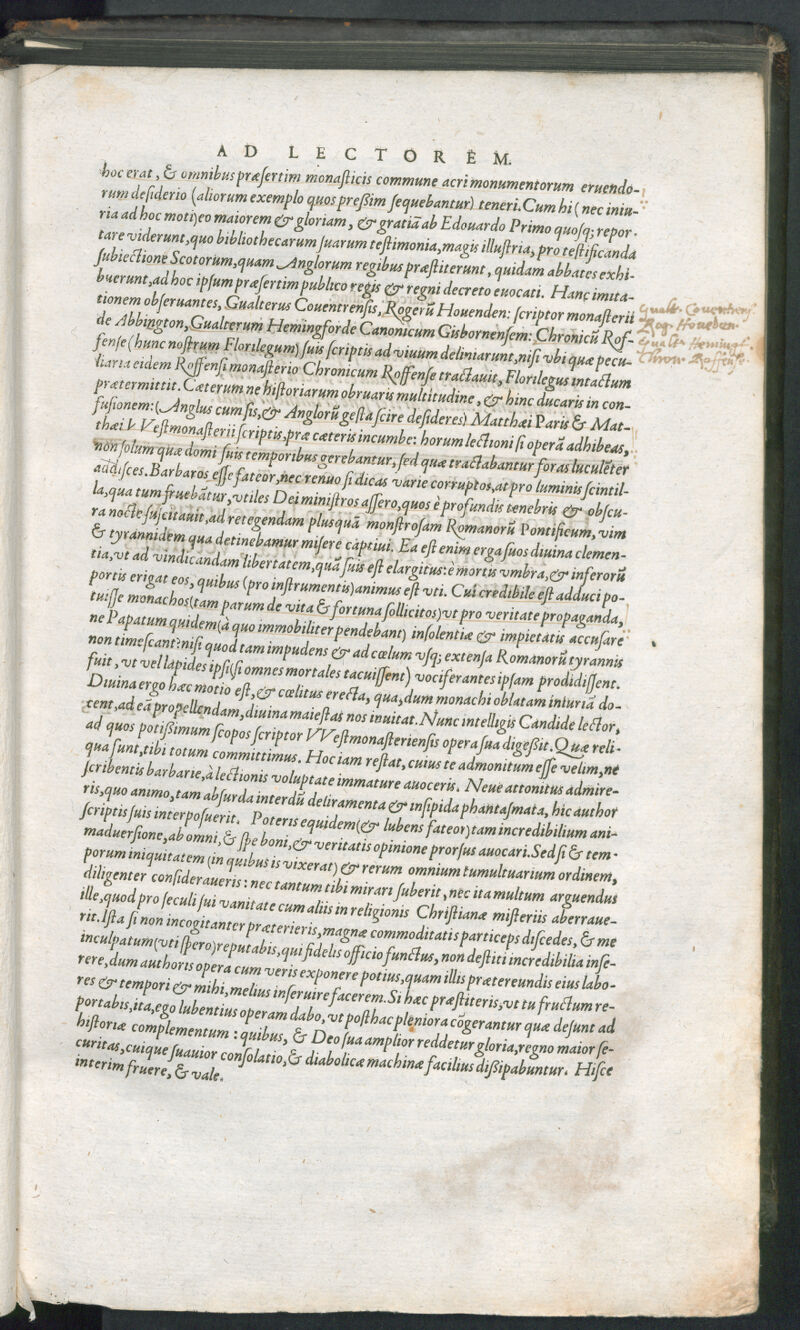 AD LECTOREM.
hoc erat, & omnibus præsertim monasticis commune acri monumentorum eruendo-
rum desiderio (aliorum exemplo quos preßim sequebantur) teneri. Cum hi (nec iniu-
ria ad hoc moti) eo maiorem & gloriam, & gratiã ab Edouardo Primo quosq; repor-
tare viderunt, quo bibliothecarum suarum testimonia, magis illustria, pro testificanda
subiectione Scotorum, quam Anglorum regibus præstiterunt, quidam abbates exhi-
buerunt, ad hoc ipsum præsertim publico regis & regni decreto euocati. Hanc imita-
tionem obseruantes, Gualterus Couentrensis, Rogerũ Houenden: scriptor monasterii
de Abbington, Gualterum Hemingforde Canonicum Gisbornensem: Chronicũ Rof-
fense (hunc nostrum Florilegum) suis scriptis ad viuum deliniarunt, nisi vbi quæ pecu-
liaria eidem Roffensi monasterio Chronicum Roffense tractauit, Florilegus intactum
prætermittit. Cæterum ne historiarum obruaris multitudine, & hinc ducaris in con-
fusionem: (Anglus cum sis, & Anglorũ gesta scire desideres) Matthæi Paris & Mat-
thæi Vestmonasterii scriptis, præ cæteris incumbe: horum lectioni si operã adhibeas,
non solum quæ domi suis temporibus gerebantur, sed quæ tractabantur foras luculẽter
addisces. Barbaros esse fateor, nec renuo si dicas varie corruptos, at pro luminis scintil-
la, qua tum fruebãtur, vtiles Dei ministros assero, quos è profundis tenebris & obscu-
ra nocte suscitauit, ad retegendam plusquã monstrosam Romanorũ Pontificum, vim
& tyrannidem qua detinebamur misere captiui. Ea est enim erga suos diuina clemen-
tia, vt ad vindicandam libertatem, quã suis est elargitus: è mortis vmbra, & inferorũ
portis erigat eos, quibus (pro instrumentis) animus est vti. Cui credibile est adduci po-
tuisse monachos (tam parum de vita & fortuna sollicitos) vt pro veritate propaganda,
ne Papatum quidem (à quo immobiliter pendebant) insolentiæ & impietatis accusare
non timescant? nisi quod tam impudens & ad cœlum vsq; extensa Romanorũ tyrannis
fuit, vt vel lapides ipsi (si omnes mortales tacuissent) vociferantes ipsam prodidissent.
Diuina ergo hæc motio est, & cœlitus erecta, qua, dum monachi oblatam iniuriã do-
cent, ad eã propellendam, diuina maiestas nos inuitat. Nunc intelligis Candide lector,
ad quos potißimum scopos scriptor VVestmonasteriensis opera sua digeßit. Quæ reli-
qua sunt, tibi totum committimus. Hoc iam restat, cuius te admonitum esse velim, ne
scribentis barbarie, à lectionis voluptate immature auoceris. Neue attonitus admire-
ris, quo animo, tam absurda interdũ deliramenta & insipida phantasmata, hic author
scriptis suis interposuerit. Poteris equidem (& lubens fateor) tam incredibilium ani-
maduersione, ab omni, & spe boni, & veritatis opinione prorsus auocari. Sed si & tem-
porum iniquitatem (in quibus is vixerat) & rerum omnium tumultuarium ordinem,
diligenter consideraueris: nec tantum tibi mirari suberit, nec ita multum arguendus
ille, quod pro seculi sui vanitate cum aliis in religionis Christianæ misteriis aberraue-
rit. Ista si non incogitanter præterieris, magnæ commoditatis particeps discedes, & me
inculpatum (vti spero) reputabis, qui fidelis officio functus, non destiti incredibilia inse-
rere, dum authoris opera cum veris exponere potius, quam illis prætereundis eius labo-
res & tempori & mihi, melius inseruire facerem. Si hæc præstiteris, vt tu fructum re-
portabis, ita, ego lubentius operam dabo, vt posthac pleniora cõgerantur quæ desunt ad
historiæ complementum: quibus, & Deo sua amplior reddetur gloria, regno maior se-
curitas, cuique suauior consolatio, & diabolicæ machinæ facilius dißipabuntur. Hisce
interim fruere, & vale.
Gualt. Couentrens.
Rog. Houeden.
Gualt. Hemingf.
Chron. Roffense.